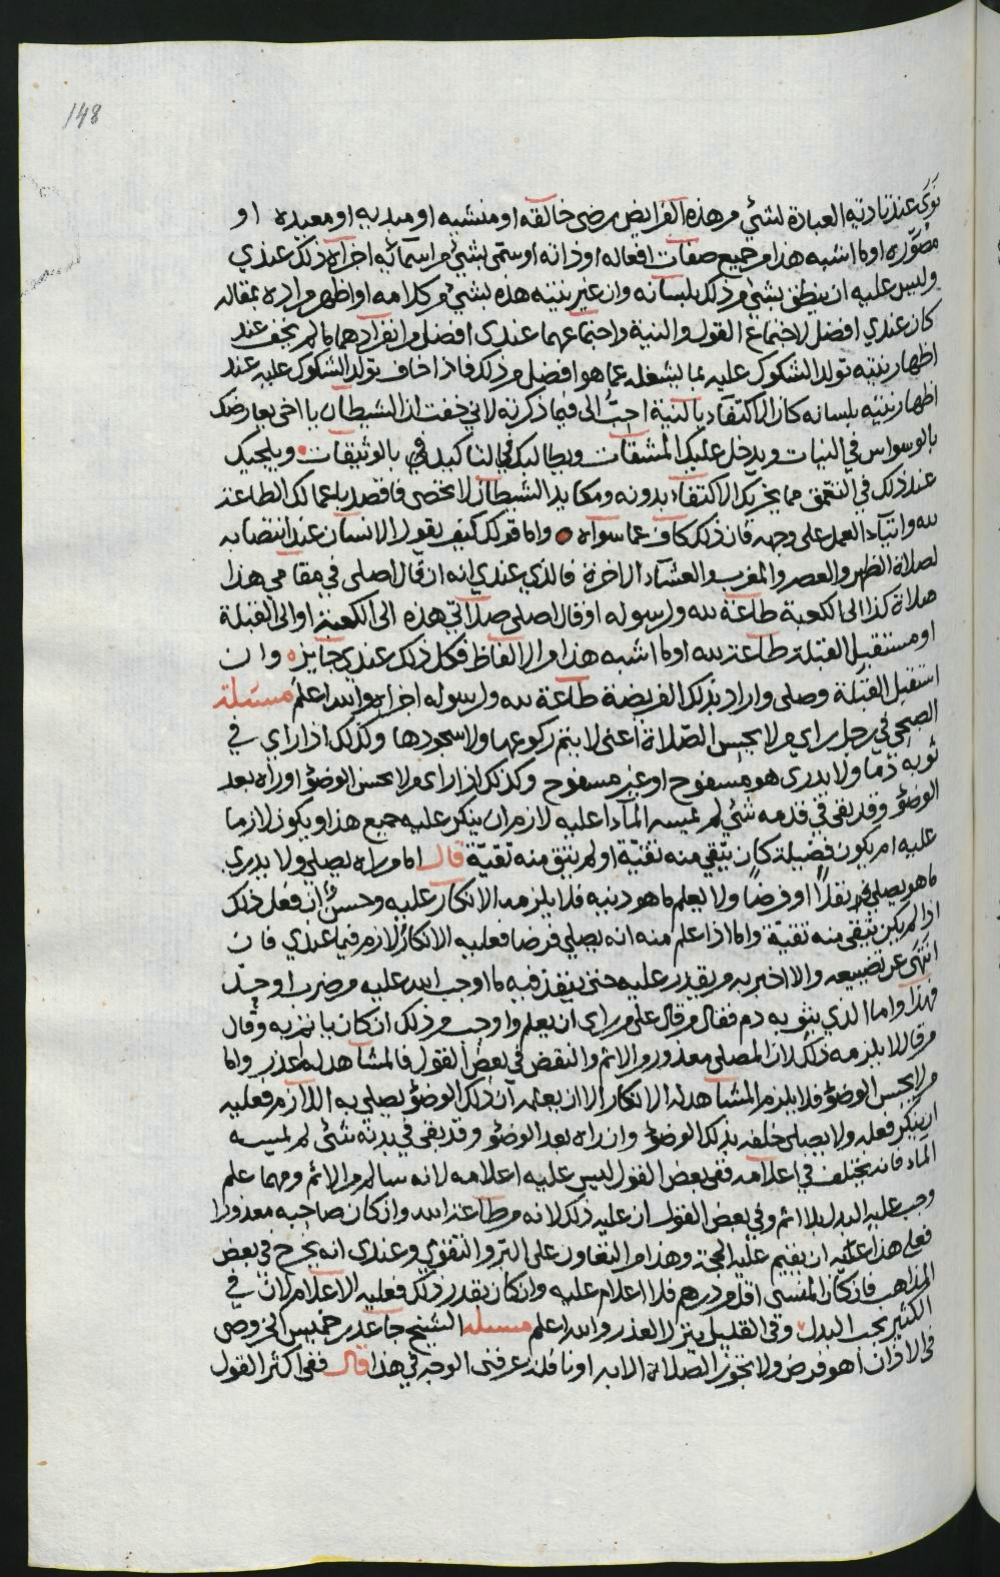 148
نوى عند تاديته العبادة لشئ من هذه الفرايض رضى خالقه او منشيه او مبديه او معيده او
مصوره او ما اشبه هذا من جميع صفات افعاله او ذاته او سمى بشئ من اسمآئه اجزآه ذلك عندي
وليس عليه ان ينطق بشئ من ذلك بلسانه وان عبر بنيته هذه لشئ من كلامه او اظهر مراده بمقاله
كان عندي افضل لاجتماع القول والنية واجتماعهما عندي افضل من انفرادهما ما لم يخف عند
اظهار نيته تولد الشكوك عليه بما يشغله عما هو افضل من ذلك فاذا خاف تولد الشكوك عليه عند
اظهار نيته بلسانه كان الاكتفآء بالنية احبّ الى فيما ذكرته لاني خفت ان الشيطان يا اخى يعارضك
بالوسواس في النيات ويدخل عليك المشقات ويطالبك في التاكيد في بالوثيقات ويلجيك
عند ذلك في التعمق مما يجزيك الاكتفآء بدونه ومكايد الشيطان لا تحصى فاقصد باعمالك الطاعة
لله واتيآء العمل على وجهه فان ذلك كاف عما سواه واما قولك كيف يقول الانسان عند انتصابه
لصلاة الظهر والعصر والمغرب والعشآء الاخرة فالذي عندي انه ان قال اصلى في مقامي هذا
صلاة كذا الى الكعبة طاعة لله ورسوله او قال اصلى صلاتي هذه الى الكعبة او الى القبلة
او مستقبل القبلة طاعة لله او ما اشبه هذا من الالفاظ فكل ذلك عندي جايز وان
استقبل القبلة وصلى واراد بذلك الفريضة طاعة لله ورسوله اجزاه والله اعلم مسئلة
الصبحي في رجل راى من لا يحسن الصّلاة اعنى لا يتم ركوعها ولا سجودها وكذلك اذا راي في
ثوبه دما ولا يدرى هو مسفوح او غير مسفوح وكذلك اذا راى من لا يحسن الوضؤ او راه بعد
الوضؤ وقد بقى في قدمه شئ لم يمسه المآء اعليه لازم ان ينكر عليه جميع هذا ويكون لازما
عليه ام يكون فضيلة كان يتقي منه تقيّة او لم يتق منه تقيّة قال اما من راه يصلي ولا يدري
ما هو يصلي نفلاً او فرضا ولا يعلم ما هو دينه فلا يلزمه الانكار عليه وحسن ان فعل ذلك
اذا لم يكن يتقي منه تقيّة واما اذا علم منه انه يصلي فرضا فعليه الانكار لازم فيما عندي فان
انتهى عن تضييعه والا اخبر به من يقدر عليه حتى ينفذ فيه ما اوجب الله عليه من ضرب او حبس
فهذا واما الذي بثوبه دم فقال من قال على من راى ان يعلم واوجب من ذلك ان كان ياتم به وقال
من قال لا يلزمه ذلك لان المصلى معذور من الاثم والنقض في بعض القول فالمشاهد له اعذر واما
من لا يحسن الوضؤ فلا يلزم المشاهد له الانكار الا ان يعلم ان ذلك الوضؤ يصلي به اللازم فعليه
ان ينكر فعله ولا يصلى خلفه بذلك الوضؤ وان راه بعد الوضؤ وقد بقى في بدنه شئ لم يمسه
المآء فانه يختلف في اعلامه ففى بعض القول ليس عليه اعلامه لانه سالم من الاثم ومهما علم
وجب عليه البدل بلا اثم وفي بعض القول ان عليه ذلك لانه من طاعة الله وان كان صاحبه معذورا
فعلى هذا عليه ان يقيم عليه الحجة وهذا من التعاون على البر والتقوى وعندي انه يخرج في بعض
المذاهب فان كان المنسى اقل من درهم فلا اعلام عليه وان كان بقدر ذلك فعليه الاعلام لان في
الكثير يجب البدل وفي القليل ينزل العذر والله اعلم مسئلة الشيخ جاعد بن خميس الخروصى
في الاذان أهو فرض ولا تجوز الصلاة الا به او نافلة عرفني الوجه في هذا قال ففى اكثر القول